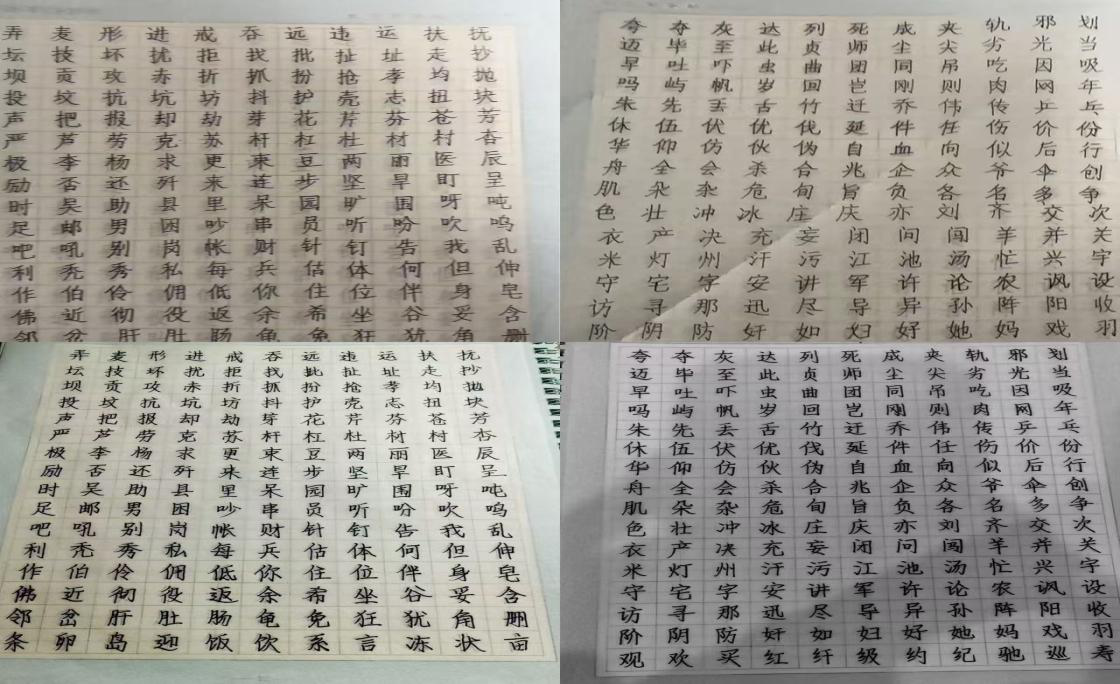 弄 麦 形 进 戒 吞 远 违 运 扶 抚
坛 技 坏 扰 拒 找 批 扯 址 走 抄
坝 贡 攻 赤 折 抓 扮 抢 孝 均 抛
投 坟 抗 坑 坊 抖 护 壳 志 扭 块
声 把 报 却 劫 芽 花 芹 芬 苍 芳
严 芦 劳 克 苏 杆 杠 杜 材 村 杏
极 李 杨 求 更 束 豆 两 丽 医 辰
励 否 还 歼 来 连 步 坚 旱 盯 呈
时 吴 助 县 里 呆 园 旷 围 呀 吨
足 邮 男 困 吵 串 员 听 吩 吹 呜
吧 吼 别 岗 帐 财 针 钉 告 我 乱
利 秃 秀 私 每 兵 估 体 何 但 伸
作 伯 伶 佣 低 你 住 位 伴 身 皂
佛 近 彻 役 返 余 希 坐 谷 妥 含
邻 岔 肝 肚 肠 龟 免 狂 犹 角 删
夸 夺 灰 达 列 死 成 夹 轨 邪 划
迈 毕 至 此 贞 师 尘 尖 劣 光 当
早 吐 吓 虫 曲 团 同 吊 吃 因 吸
吗 屿 帆 岁 回 岂 刚 则 肉 网 年
朱 先 丢 舌 竹 迁 乔 伟 传 乒 乓
休 伍 伏 优 伐 延 件 任 伤 价 份
华 仰 仿 伙 伪 自 血 向 似 后 行
舟 全 会 杀 合 兆 企 众 爷 伞 创
肌 杂 杂 危 旬 旨 负 各 名 多 争
色 壮 冲 冰 庄 庆 亦 刘 齐 交 次
衣 产 决 充 妄 闭 问 闯 羊 并 关
米 灯 州 汗 污 江 池 汤 忙 兴 宇
守 宅 字 安 讲 军 许 论 农 讽 设
访 寻 那 迅 尽 导 异 孙 阵 阳 收
阶 阴 防 奸 如 妇 好 她 妈 戏 羽
弄 麦 形 进 戒 吞 远 违 运 扶 抚
坛 技 坏 扰 拒 找 批 扯 址 走 抄
坝 贡 攻 赤 折 抓 扮 抢 孝 均 抛
投 坟 抗 坑 坊 抖 护 壳 志 扭 块
声 把 报 却 劫 芽 花 芹 芬 苍 芳
严 芦 劳 克 苏 杆 杠 杜 材 村 杏
极 李 杨 求 更 束 豆 两 丽 医 辰
励 否 还 歼 来 连 步 坚 旱 盯 呈
时 吴 助 县 里 呆 园 旷 围 呀 吨
足 邮 男 困 吵 串 员 听 吩 吹 呜
吧 吼 别 岗 帐 财 针 钉 告 我 乱
利 秃 秀 私 每 兵 估 体 何 但 伸
作 伯 伶 佣 低 你 住 位 伴 身 皂
佛 近 彻 役 返 余 希 坐 谷 妥 含
邻 岔 肝 肚 肠 龟 免 狂 犹 角 删
条 卵 岛 迎 饭 饮 系 言 冻 状 亩
夸 夺 灰 达 列 死 成 夹 轨 邪 划
迈 毕 至 此 贞 师 尘 尖 劣 光 当
早 吐 吓 虫 曲 团 同 吊 吃 因 吸
吗 屿 帆 岁 回 岂 刚 则 肉 网 年
朱 先 丢 舌 竹 迁 乔 伟 传 乒 乓
休 伍 伏 优 伐 延 件 任 伤 价 份
华 仰 仿 伙 伪 自 血 向 似 后 行
舟 全 会 杀 合 兆 企 众 爷 伞 创
肌 朵 杂 危 旬 旨 负 各 名 多 争
色 壮 冲 冰 庄 庆 亦 刘 齐 交 次
衣 产 决 充 妄 闭 问 闯 羊 并 关
米 灯 州 汗 污 江 池 汤 忙 兴 宇
守 宅 字 安 讲 军 许 论 农 讽 设
访 寻 那 迅 尽 导 异 孙 阵 阳 收
阶 阴 防 奸 如 妇 好 她 妈 戏 羽
观 欢 买 红 纤 级 约 纪 驰 巡 寿